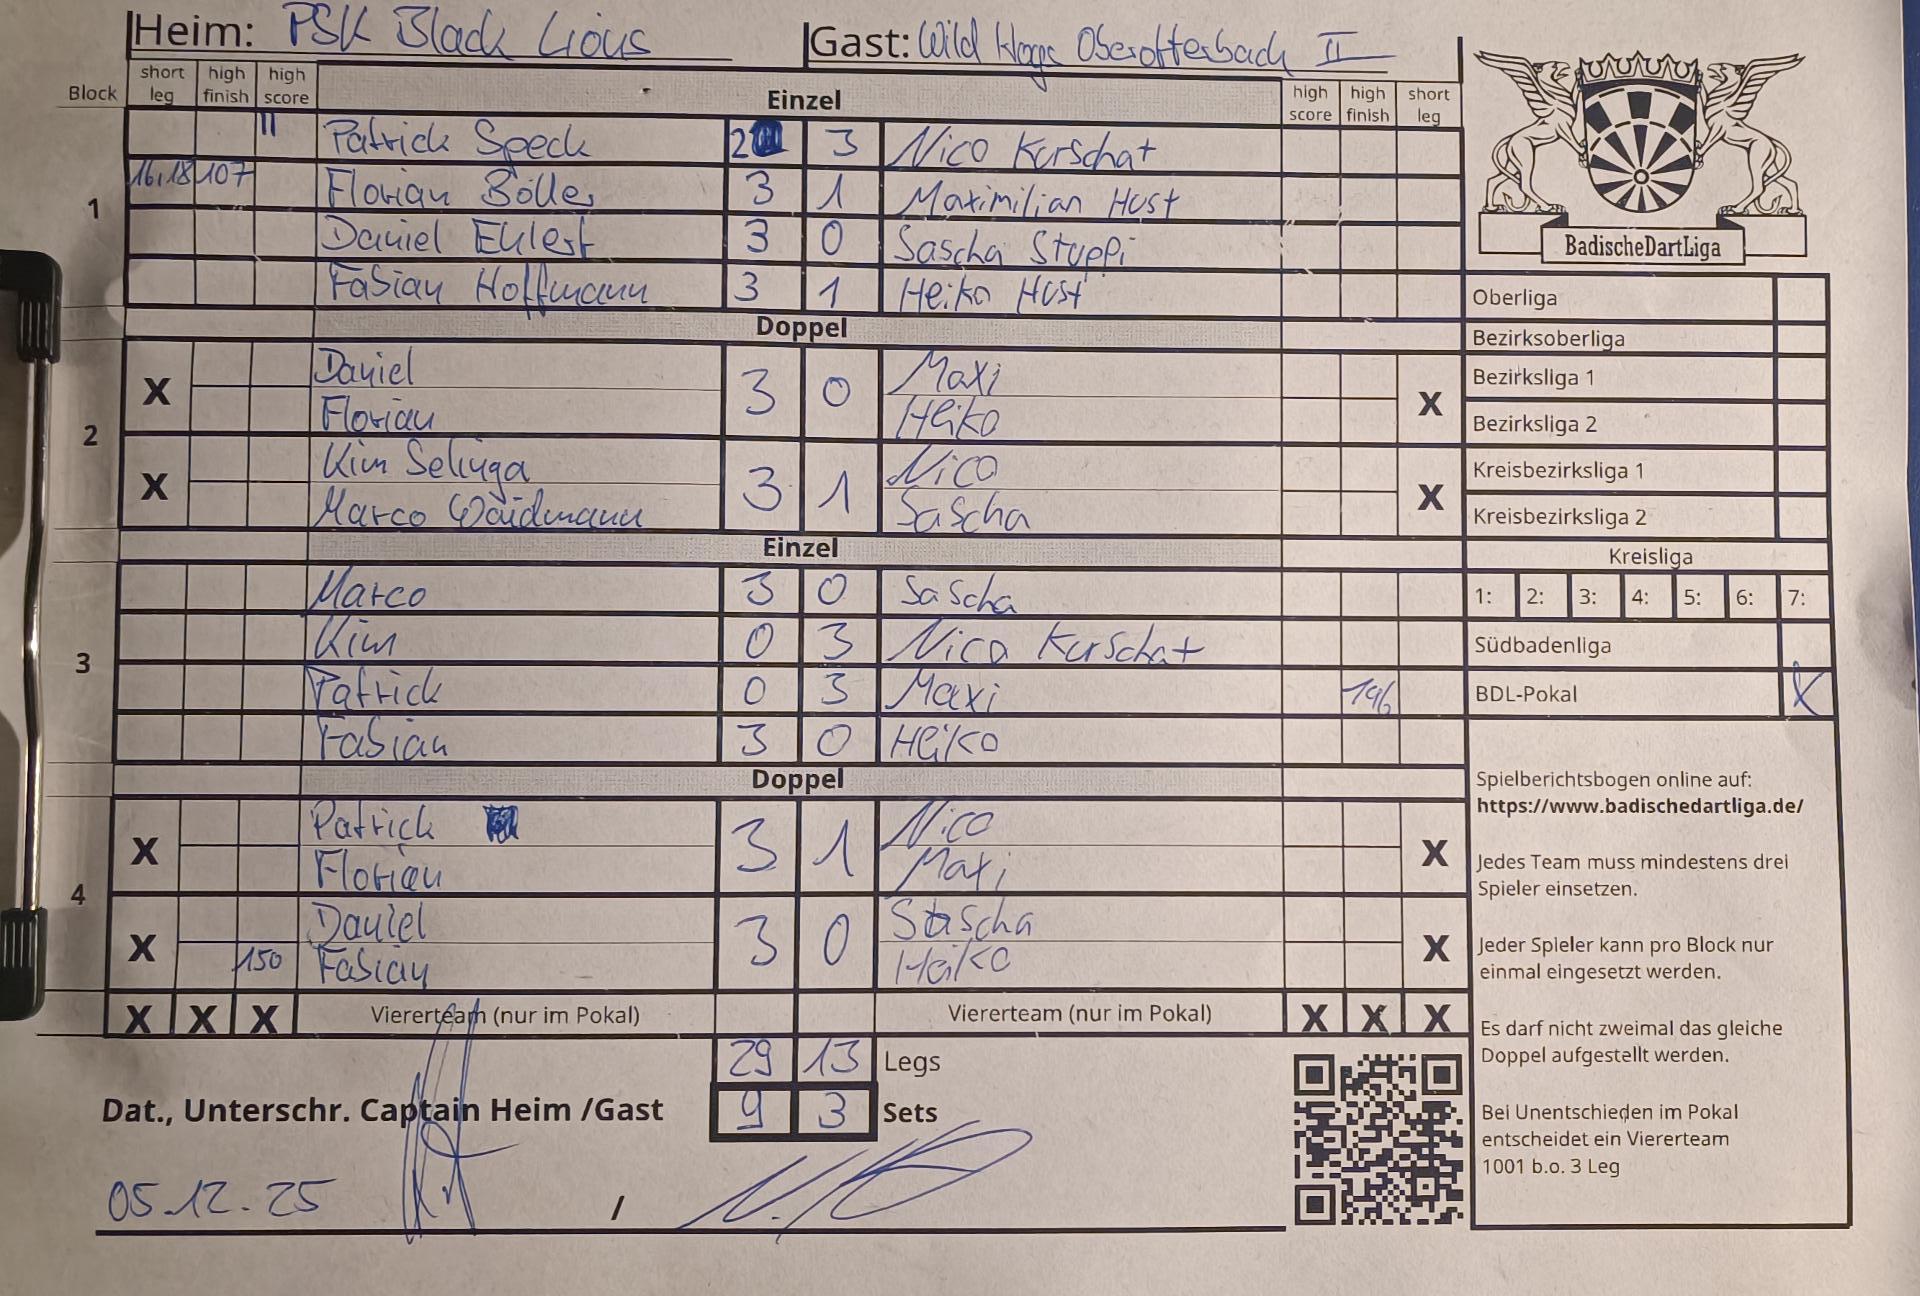 Heim: PSK Black Lions Gast: Wild Hogs Oberotterbach II
Block short leg high finish high score Einzel high score high finish short leg
1
II Patrick Speck 2 3 Nico Kurschat
16,18 107 Florian Böller 3 1 Maximilian Hust
Daniel Ehlert 3 0 Sascha Stuppi
Fabian Hoffmann 3 1 Heiko Hust
Doppel
2
X Daniel 3 0 Maxi X
Florian Heiko
X Kim Selinga 3 1 Nico X
Marco Waidmann Sascha
Einzel
3
Marco 3 0 Sascha
Kim 0 3 Nico Kurschat
Patrick 0 3 Maxi 146
Fabian 3 0 Heiko
Doppel
4
X Patrick 3 1 Nico X
Florian Maxi
X Daniel 3 0 Sascha X
150 Fabian Heiko
X X X Viererteam (nur im Pokal) Viererteam (nur im Pokal) X X X
29 13 Legs
Dat., Unterschr. Captain Heim /Gast 9 3 Sets
05.12.25 /
BadischeDartLiga
Oberliga
Bezirksoberliga
Bezirksliga 1
Bezirksliga 2
Kreisbezirksliga 1
Kreisbezirksliga 2
Kreisliga
1: 2: 3: 4: 5: 6: 7:
Südbadenliga
BDL-Pokal X
Spielberichtsbogen online auf:
https://www.badischedartliga.de/
Jedes Team muss mindestens drei
Spieler einsetzen.
Jeder Spieler kann pro Block nur
einmal eingesetzt werden.
Es darf nicht zweimal das gleiche
Doppel aufgestellt werden.
Bei Unentschieden im Pokal
entscheidet ein Viererteam
1001 b.o. 3 Leg